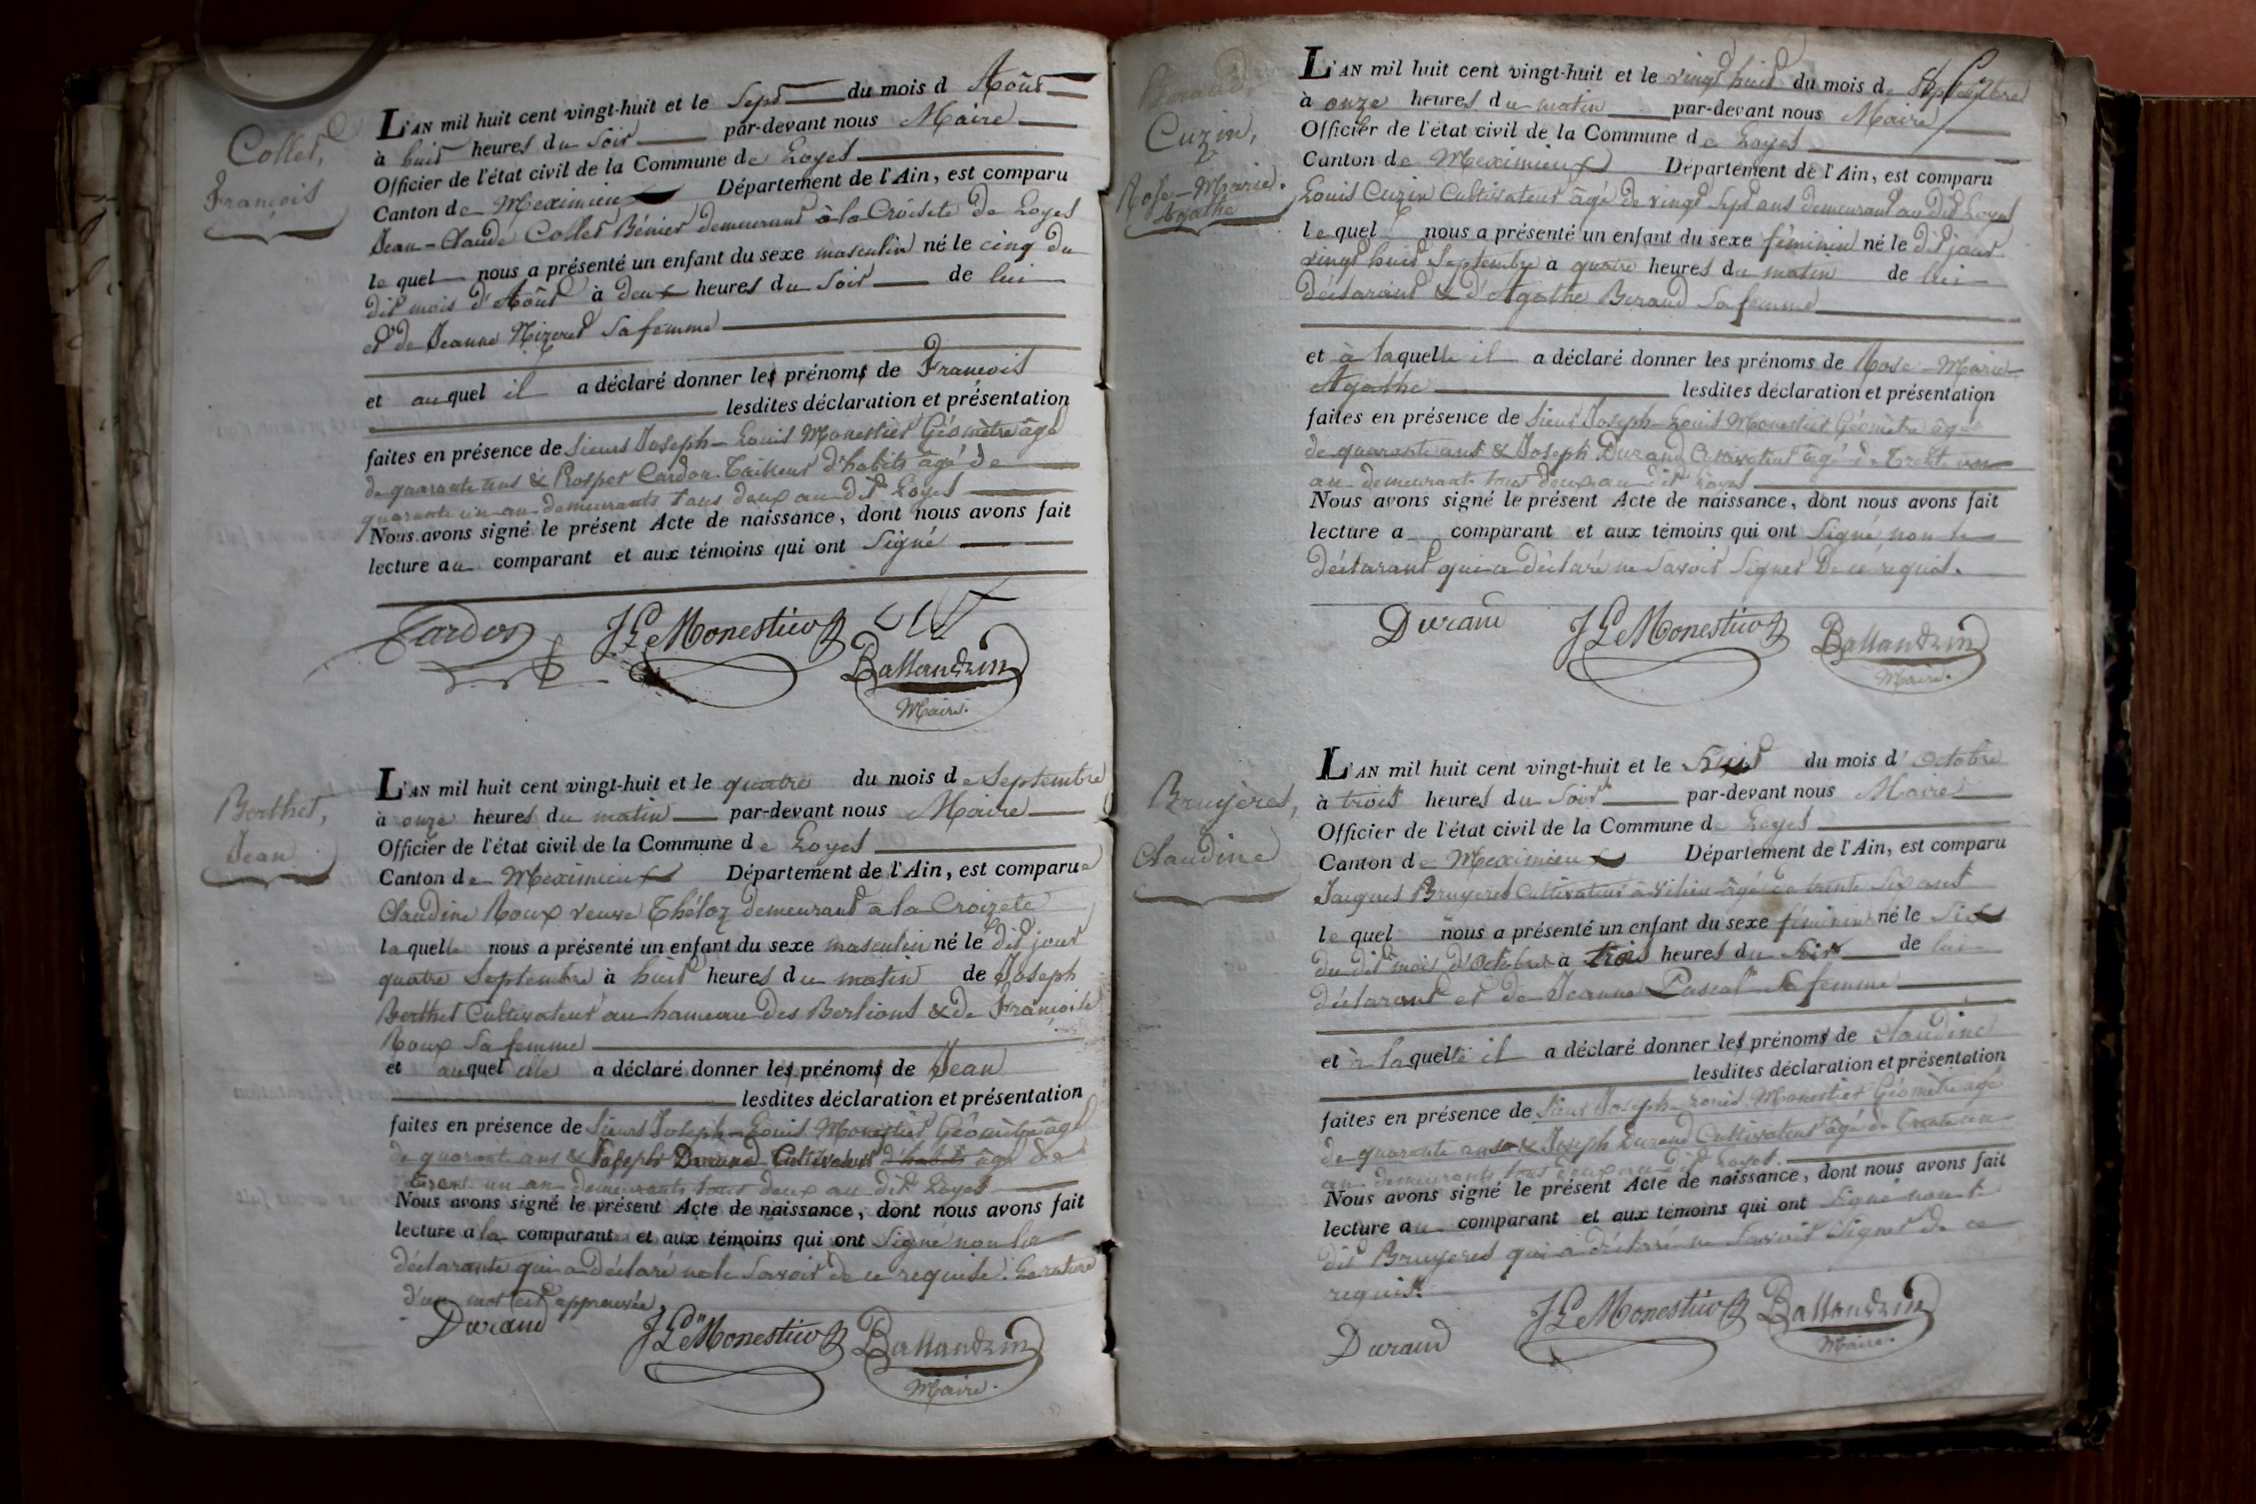 Collet,
François
L'AN mil huit cent vingt-huit et le Sept du mois d Août
à huit heures du Soir par-devant nous Maire
Officier de l'état civil de la Commune de Loyes
Canton de Meximieux Département de l'Ain, est comparu
Jean-Claude Collet Bénier demeurant à la Croisete de Loyes
le quel nous a présenté un enfant du sexe masculin né le cinq du
dit mois d'Août à deux heures du Soir de lui
et de Jeanne Mizeret Sa femme
et auquel il a déclaré donner les prénoms de François
lesdites déclaration et présentation
faites en présence de Sieurs Joseph-Louis Monestier Géomètre âgé
de quarante ans & Prosper Cardon Tailleur d'habits âgé de
quarante un an demeurants tous deux au dit Loyes
Nous avons signé le présent Acte de naissance, dont nous avons fait
lecture au comparant et aux témoins qui ont Signé
Cardon JLeMonestier Ballandrin
Maire.
Berthet,
Jean
L'AN mil huit cent vingt-huit et le quatre du mois de Septembre
à onze heures du matin par-devant nous Maire
Officier de l'état civil de la Commune de Loyes
Canton de Meximieux Département de l'Ain, est comparue
Claudine Roux veuve Théloz demeurant à la Croizete
laquelle nous a présenté un enfant du sexe masculin né le dit jour
quatre Septembre à huit heures du matin de Joseph
Berthet Cultivateur au hameau des Berlions & de Françoise
Roux Sa femme
et auquel elle a déclaré donner les prénoms de Jean
lesdites déclaration et présentation
faites en présence de Sieurs Joseph-Louis Monestier Géomètre âgé
de quarante ans & Joseph Durand Cultivateur d'habits âgé de
trente un an demeurants tous deux au dit Loyes
Nous avons signé le présent Acte de naissance, dont nous avons fait
lecture a la comparante et aux témoins qui ont Signé non la
déclarante qui a déclaré ne le Savoir de ce requise. La rature
d'un mot est approuvée
Durand JLeMonestier Ballandrin
Maire.
Beraud,
Cuzin,
Rose-Marie.
Agathe
L'AN mil huit cent vingt-huit et le vingt huit du mois de Septembre
à onze heures du matin par-devant nous Maire
Officier de l'état civil de la Commune de Loyes
Canton de Meximieux Département de l'Ain, est comparu
Louis Cuzin Cultivateur âgé de vingt Sept ans demeurant au dit Loyes
le quel nous a présenté un enfant du sexe féminin né le dit jour
vingt huit Septembre à quatre heures du matin de lui
déclarant & d'Agathe Beraud Sa femme
et à laquelle il a déclaré donner les prénoms de Rose-Marie
Agathe lesdites déclaration et présentation
faites en présence de Sieurs Joseph-Louis Monestier Géomètre âgé
de quarante ans & Joseph Durand Cultivateur âgé de trente un
an demeurants tous deux au dit Loyes
Nous avons signé le présent Acte de naissance, dont nous avons fait
lecture a comparant et aux témoins qui ont Signé non le
déclarant qui a déclaré ne Savoir Signer De ce requis.
Durand JLeMonestier Ballandrin
Maire.
Bruyères,
Claudine
L'AN mil huit cent vingt-huit et le huit du mois d'Octobre
à trois heures du Soir par-devant nous Maire
Officier de l'état civil de la Commune de Loyes
Canton de Meximieux Département de l'Ain, est comparu
Jacques Bruyeres Cultivateur à Vilieu âgé de trente Six ans
le quel nous a présenté un enfant du sexe féminin né le Six
du dit mois d'Octobre à trois heures du Soir de lui
déclarant et de Jeanne Pascal Sa femme
et à laquelle il a déclaré donner les prénoms de Claudine
lesdites déclaration et présentation
faites en présence de Sieurs Joseph-Louis Monestier Géomètre âgé
de quarante ans & Joseph Durand Cultivateur âgé de Trente un
an demeurants tous deux au dit Loyes.
Nous avons signé le présent Acte de naissance, dont nous avons fait
lecture au comparant et aux témoins qui ont Signé non le
dit Bruyeres qui a déclaré ne Savoir Signer de ce
requis.
Durand JLeMonestier Ballandrin
Maire.